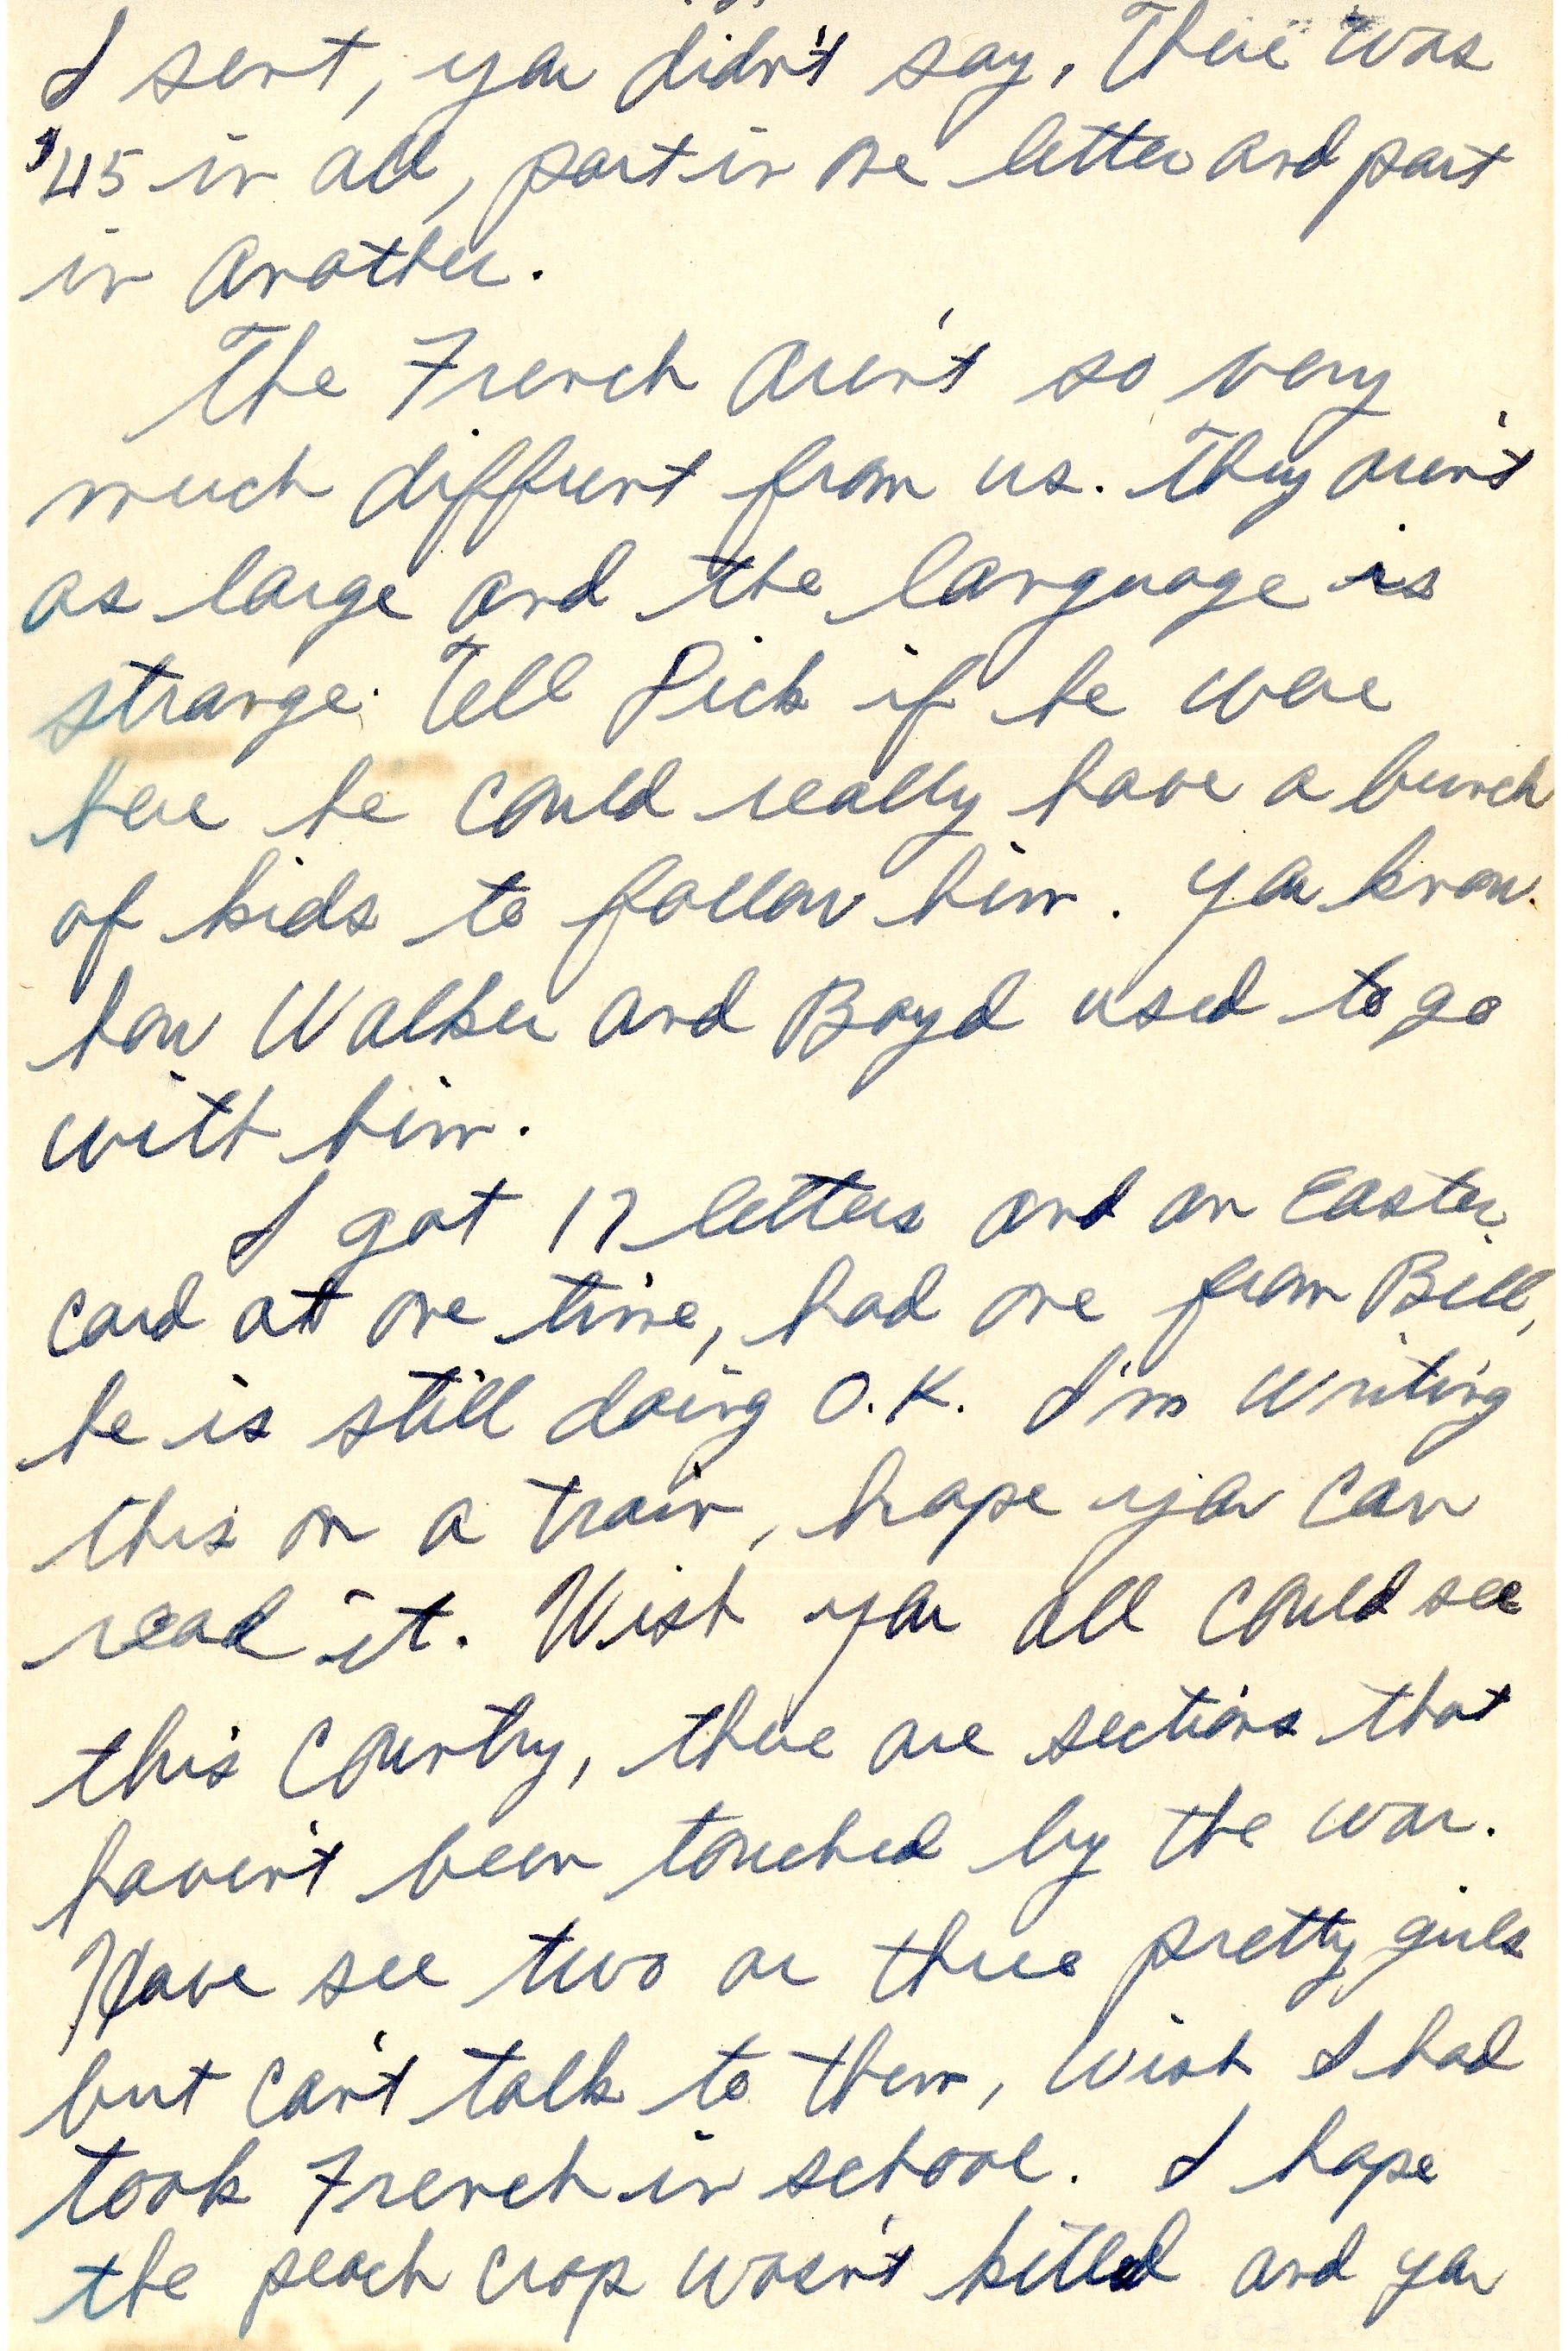 I sent, you didn't say. There was
$45 in all, part in one letter and part
in another.
The French aren't so very
much diffrent from us. They aren't
as large and the language is
strange. Tell Dick if he were
here he could really have a bunch
of kids to follow him. You know
how Walker and Boyd used to go
with him.
I got 17 letters and an Easter
card at one time, had one from Bill,
he is still doing O.K. I'm writing
this on a train, hope you can
read it. Wish you all could see
this country, there are sections that
haven't been touched by the war.
Have see two or three pretty girls
but can't talk to them, wish I had
took French in school. I hope
the peach crop wasn't killed and you